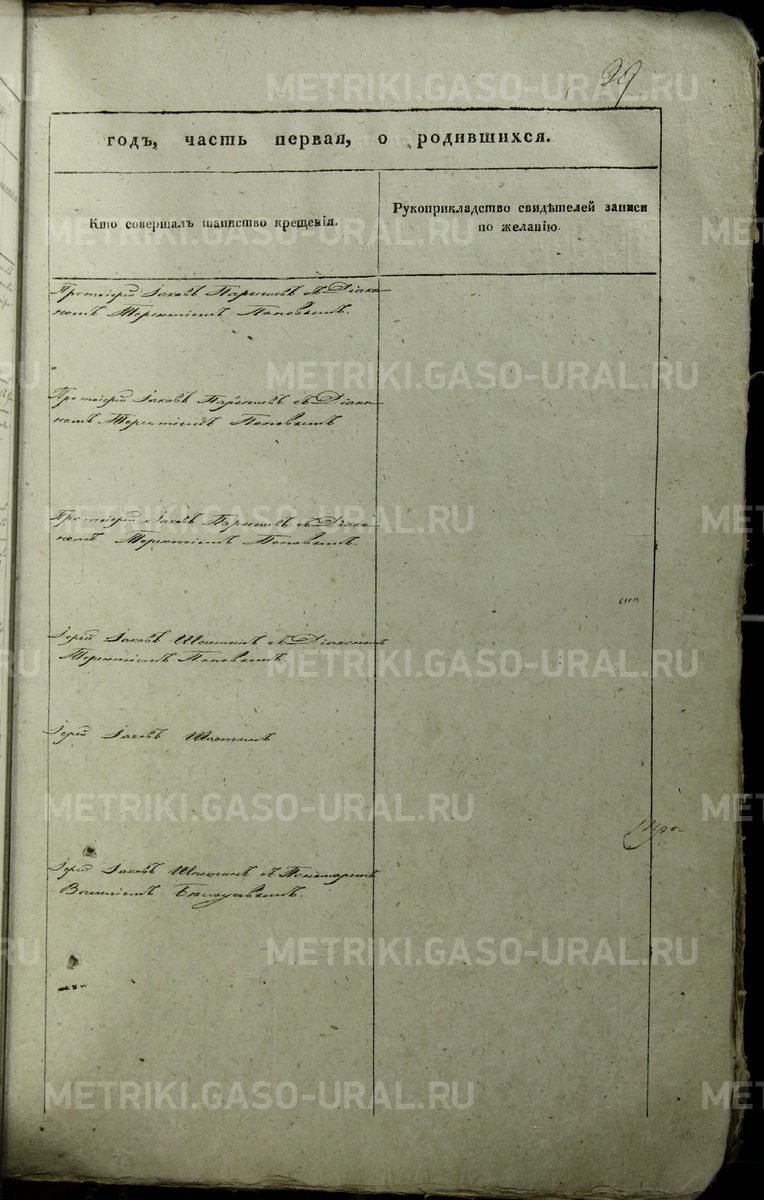 29
годъ, часть первая, о родившихся.
Кто совершалъ таинство крещенія.
Рукоприкладство свидѣтелей записи
по желанію.
Протоіерей Іаковъ съ Діако-
номъ Терентіемъ Поповымъ.
Протоіерей Іаковъ съ Діако-
номъ Терентіемъ Поповымъ
Протоіерей Іаковъ съ Діако-
номъ Терентіемъ Поповымъ.
Іерей Іаковъ Шастинъ съ Діакономъ
Терентіемъ Поповымъ.
Іерей Іаковъ Шастинъ
Іерей Іаковъ Шастинъ съ Пономаремъ
METRIKI.GASO-URAL.RU
METRIKI.GASO-URAL.RU
METRIKI.GASO-URAL.RU
METRIKI.GASO-URAL.RU
METRIKI.GASO-URAL.RU
METRIKI.GASO-URAL.RU
METRIKI.GASO-URAL.RU
METRIKI.GASO-URAL.RU